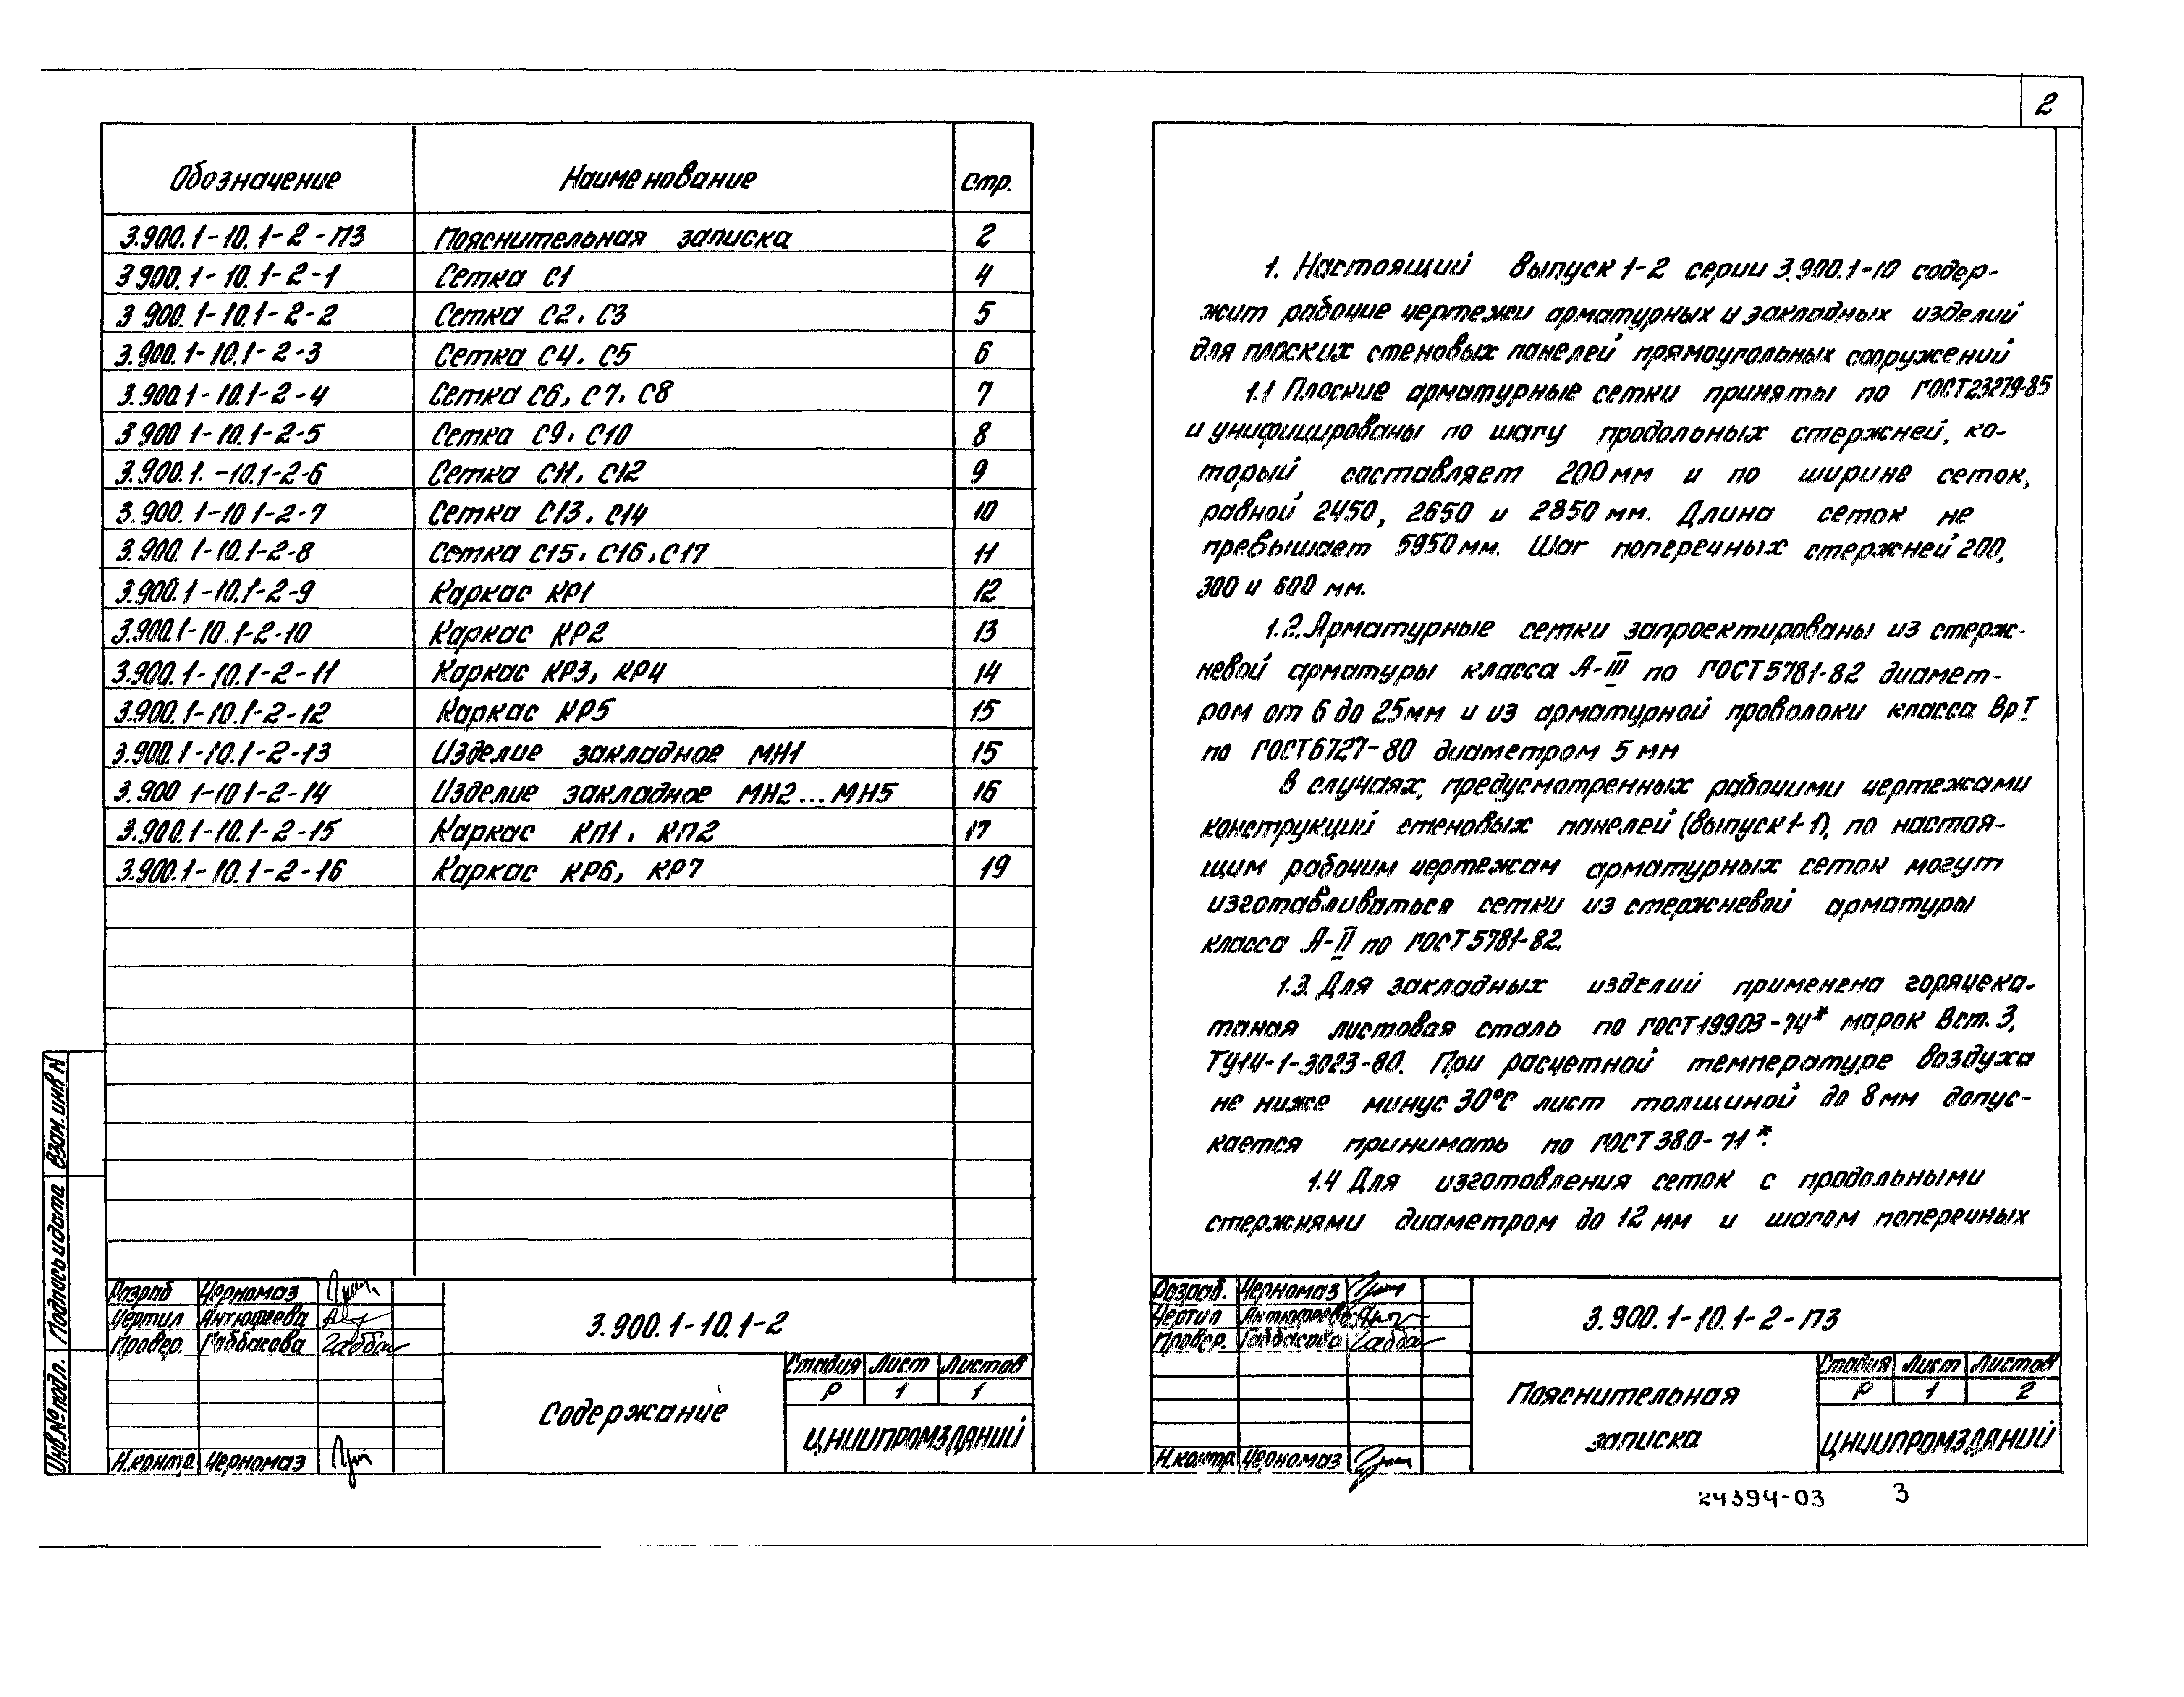 2
Обозначение Наименование Стр.
3.900.1-10.1-2-ПЗ Пояснительная записка 2
3 900.1-10.1-2-1 Сетка С1 4
3 900.1-10.1-2-2 Сетка С2, С3 5
3.900.1-10.1-2-3 Сетка С4, С5 6
3.900.1-10.1-2-4 Сетка С6, С7, С8 7
3 900 1-10.1-2-5 Сетка С9, С10 8
3.900.1.-10.1-2-6 Сетка С11, С12 9
3.900.1-10 1-2-7 Сетка С13, С14 10
3.900.1-10.1-2-8 Сетка С15, С16, С17 11
3.900.1-10.1-2-9 Каркас КР1 12
3.900.1-10.1-2-10 Каркас КР2 13
3.900.1-10.1-2-11 Каркас КР3, КР4 14
3.900.1-10.1-2-12 Каркас КР5 15
3.900.1-10.1-2-13 Изделие закладное МН1 15
3.900 1-10 1-2-14 Изделие закладное МН2...МН5 16
3.900.1-10.1-2-15 Каркас КП1, КП2 17
3.900.1-10.1-2-16 Каркас КР6, КР7 19
Взам. инв N
Подпись и дата
Инв.№ подл.
Разраб Черномаз
Чертил Антюфеева
Провер. Габбасова
Н.контр. Черномаз
3.900.1-10.1-2
Содержание
Стадия Лист Листов
Р 1 1
ЦНИИПРОМЗДАНИЙ
1. Настоящий выпуск 1-2 серии 3.900.1-10 содер-
жит рабочие чертежи арматурных и закладных изделий
для плоских стеновых панелей прямоугольных сооружений
1.1 Плоские арматурные сетки приняты по ГОСТ 23279-85
и унифицированы по шагу продольных стержней, ко-
торый составляет 200 мм и по ширине сеток,
равной 2450, 2650 и 2850 мм. Длина сеток не
превышает 5950 мм. Шаг поперечных стержней 200,
300 и 600 мм.
1.2. Арматурные сетки запроектированы из стерж-
невой арматуры класса А-III по ГОСТ 5781-82 диамет-
ром от 6 до 25 мм и из арматурной проволоки класса Вр I
по ГОСТ 6727-80 диаметром 5 мм
В случаях, предусмотренных рабочими чертежами
конструкций стеновых панелей (выпуск 1-1), по настоя-
щим рабочим чертежам арматурных сеток могут
изготавливаться сетки из стержневой арматуры
класса А-II по ГОСТ 5781-82.
1.3. Для закладных изделий применена горячека-
таная листовая сталь по ГОСТ 19903-74* марок Вст. 3,
ТУ14-1-3023-80. При расчетной температуре воздуха
не ниже минус 30°С лист толщиной до 8 мм допус-
кается принимать по ГОСТ 380-71*.
1.4 Для изготовления сеток с продольными
стержнями диаметром до 12 мм и шагом поперечных
Разраб. Черномаз
Чертил Антюфеева
Провер. Габбасова
Н.контр Черномаз
3.900.1-10.1-2-ПЗ
Пояснительная
записка
Стадия Лист Листов
Р 1 2
ЦНИИПРОМЗДАНИЙ
24394-03 3